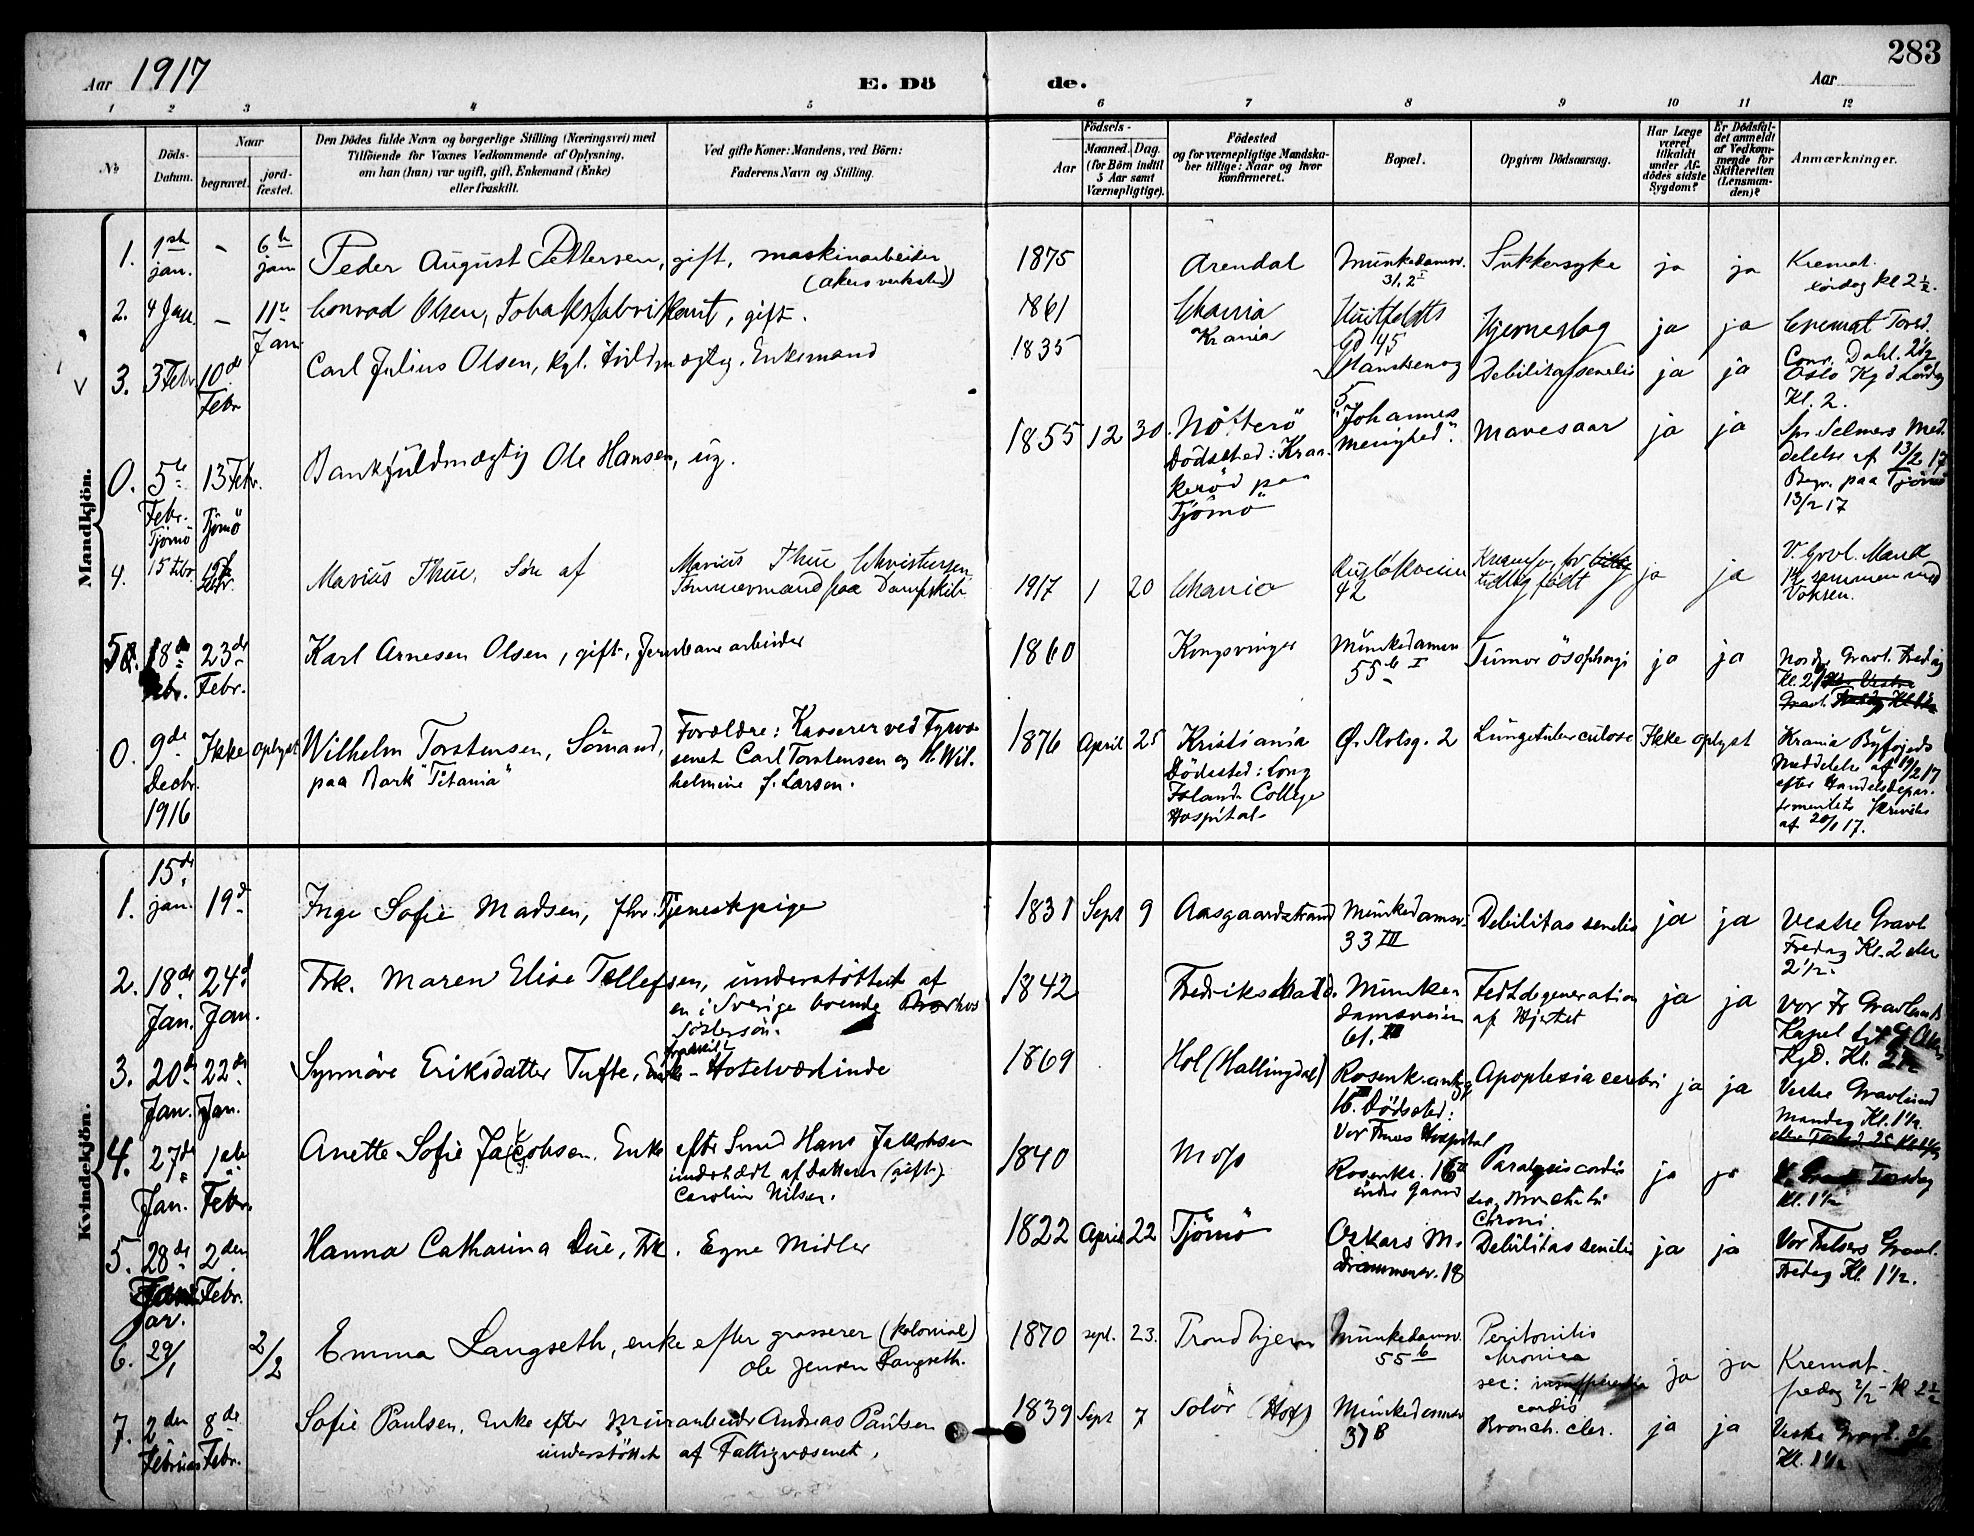 283
Aar 1917
E. Dö
de.
Aar
1 2 3 4 5 6 7 8 9 10 11 12
No
Döds-
Datum.
Naar
begravet.
jord-
fæstet.
Den Dödes fulde Navn og borgerlige Stilling (Næringsvei) med
Tilföiende for Voxnes Vedkommende af Oplysning,
om han (hun) var ugift, gift, Enkemand (Enke)
eller fraskilt.
Ved gifte Koner: Mandens, ved Börn:
Faderens Navn og Stilling.
Födsels-
Aar
Maaned.
Dag.
(for Börn indtil
5 Aar samt
Værnepligtige).
Födested
og for værnepligtige Mandska-
ber tillige: Naar og hvor
konfirmeret.
Bopæl.
Opgiven Dödsaarsag.
Har Læge
været
tilkaldt
under Af-
dödes sidste
Sygdom?
Er Dödsfal-
det anmeldt
af Vedkom-
mende for
Skifteretten
(Lensman-
den)?
Anmærkninger.
Mandkjön.
1.
1ste
jan.
-
6te
jan
Peder August Pettersen, gift, maskinarbeider
(akers verksted)
1875
Arendal
Munkedamsv.
31, 2
Sukkersyke
ja
ja
Kremat.
lördag kl 2 1/2.
2.
4 Jan.
-
11te
Jan.
Conrad Olsen, Tobaksfabrikant, gift.
1861
Chania
Huitfeldts
Gd 45
Hjerneslag
ja
ja
Cremat Torsd.
3.
3 Febr
10de
Febr
Carl Julius Olsen, kgl. fuldmægtg. Enkemand
1835
Krania
5
Debilitas senilis
ja
ja
Conr. Dahl. 2 1/2
Oslo Kgd Lördag
Kl. 2.
0.
5te
Febr.
Tjömö
13 Febr.
Tjömö
Bankfuldmægtig Ole Hansen, ug.
1855
12
30.
Nötterö
Dödssted: Kran-
keröd paa
Tjömö
"Johannes
menighed".
Mavesaar
ja
ja
Spr Selmers Med-
delelse af 13/2 17
Begr. paa Tjömö
13/2 17
4.
15 Febr
Febr.
Marius Thue, Sön af
Marius Thue Christensen
Tömmermand paa Dampskib
1917
1
20
Chania
Ruslökveien
42
for
tidlig födt
ja
ja
V. Gravl.
sammen med
Voksen.
5.
18de
Febr.
23de
Febr.
Karl Arnesen Olsen, gift, Jernbanearbeider
1860
Kongsvinger
Munkedamsv
55b I
Tumor ösophagi
ja
ja
Nordr. Gravl. Fredag
Kl. 2
0.
9de
Decbr.
1916
Ikke oplyst
Wilhelm Torstensen, Sömand,
paa Bark "Titania"
Forældre: Kasserer ved Fyrvæ-
senet Carl Torstensen og H. Wil-
helmine f. Larsen.
1876
April
25
Kristiania
Dödssted: Long
Island College
Hospital-
Ö. Slotsg. 2
Lungetuberculose
Ikke oplyst
Krania Byfogeds
Meddelelse af 19/2 17
efter Handelsdepar-
tementets Skrivelse
af 20/1 17.
Kvindekjön.
1.
15de
jan.
19d
Inge Sofie Madsen, fhv. Tjenestepige
1831
Sept
9
Aasgaardstrand
Munkedamsv.
33 III
Debilitas senilis
ja
ja
Vestre Gravl
Fredag Kl. 2 eller
2 1/2.
2.
18de
Jan.
24d
Jan.
Frk. Maren Elise Tollefsen, understöttet af
en i Sverige boende
Söstersön.
1842
Fredrikshald.
Munke-
damsveien
61. III
Fedtdegeneration
af Hjertet
ja
ja
Vor Fr Gravlunds
Kapel
Kgd. Kl. 2 1/2
3.
20de
Jan.
22de
Jan.
fraskilt
Synnöve Eriksdatter Tufte, Enke - Hotelværtinde
1869
Hol (Hallingdal)
Rosenkrantzg
16. Dödssted:
Vor Frues Hospital
Apoplexia cerebri
ja
ja
Vestre Gravlund
Mandag Kl. 1 1/2
4.
27de
Jan.
1ste
Febr.
Anette Sofie Jacobsen. Enke efter Smed Hans Jakobsen
underhædt af Datteren (gift)
Caroline Nilsen.
1840
Moss
Rosenkr. 16
indre Gaard
Paralysis cordis
Bronchitis
Chroni.
ja
ja
Torsdag
Kl. 1 1/2
5.
28de
Jan.
2den
Febr.
Hanna Catharina Due, Frk. Egne Midler
1822
April
22
Tjömö
Oskars M.
Drammensv. 18
Debilitas senilis
ja
ja
Vor Frelsers Gravl.
Fredag Kl. 1 1/2.
6.
29/1
2/2
Emma Langseth, enke efter grosserer (kolonial)
Ole Jensen Langseth.
1870
sept.
23.
Trondhjem
Munkedamsv.
55b
Peritonitis
chronica
sec: insufficientia
cordis
ja
ja
Kremat.
fredag 2/2 - kl 2 1/2
7.
2den
Februar
8de
Febr.
Sofie Paulsen, Enke efter Murarbeider Andreas Paulsen
understöttet af Fattigvæsenet.
1839
Sept
7
Solör (Hof)
Munkedamsv
37 B
Bronch. chr.
ja
ja
Vestre Gravl. 8/2
Kl. 1 1/2